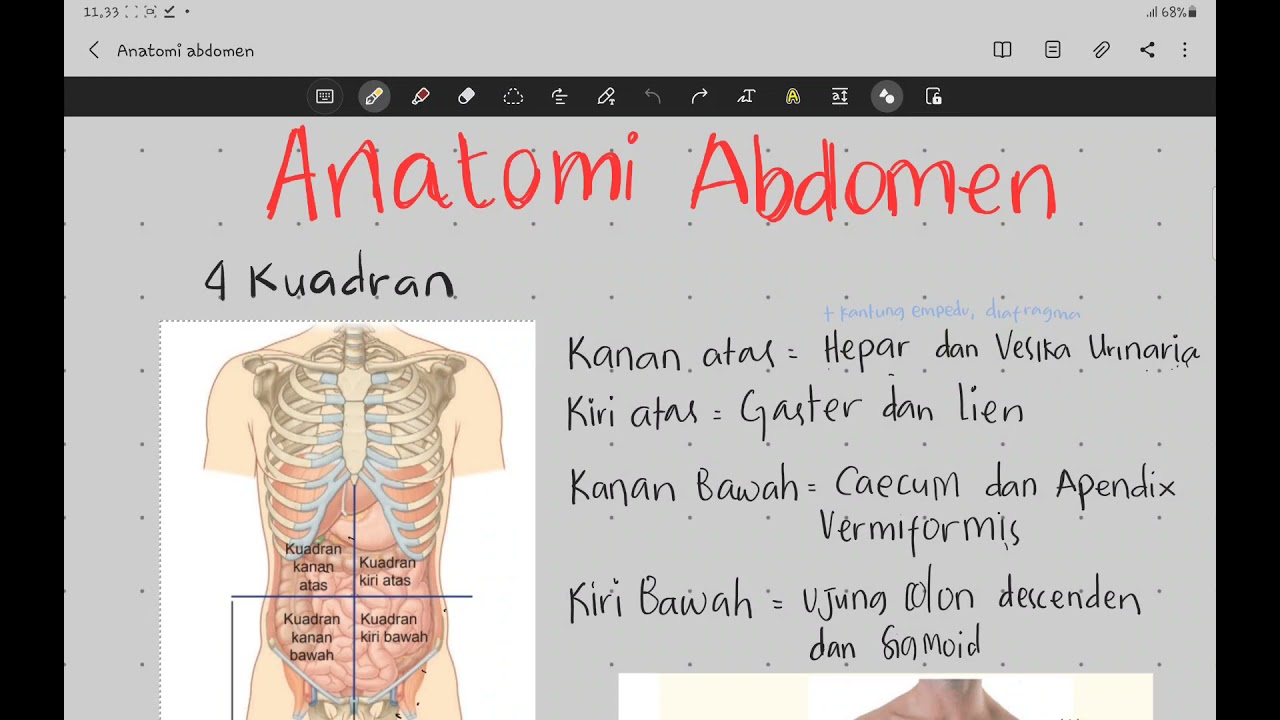 11.33
68%
Anatomi abdomen
Anatomi Abdomen
4 Kuadran
+ kantung empedu, diafragma
Kanan atas = Hepar dan Vesika Urinaria
Kiri atas = Gaster dan lien
Kanan Bawah = Caecum dan Apendix
Vermiformis
Kiri Bawah = Ujung Colon descenden
dan Sigmoid
Kuadran
kanan
atas
Kuadran
kiri atas
Kuadran
kanan
bawah
Kuadran
kiri bawah